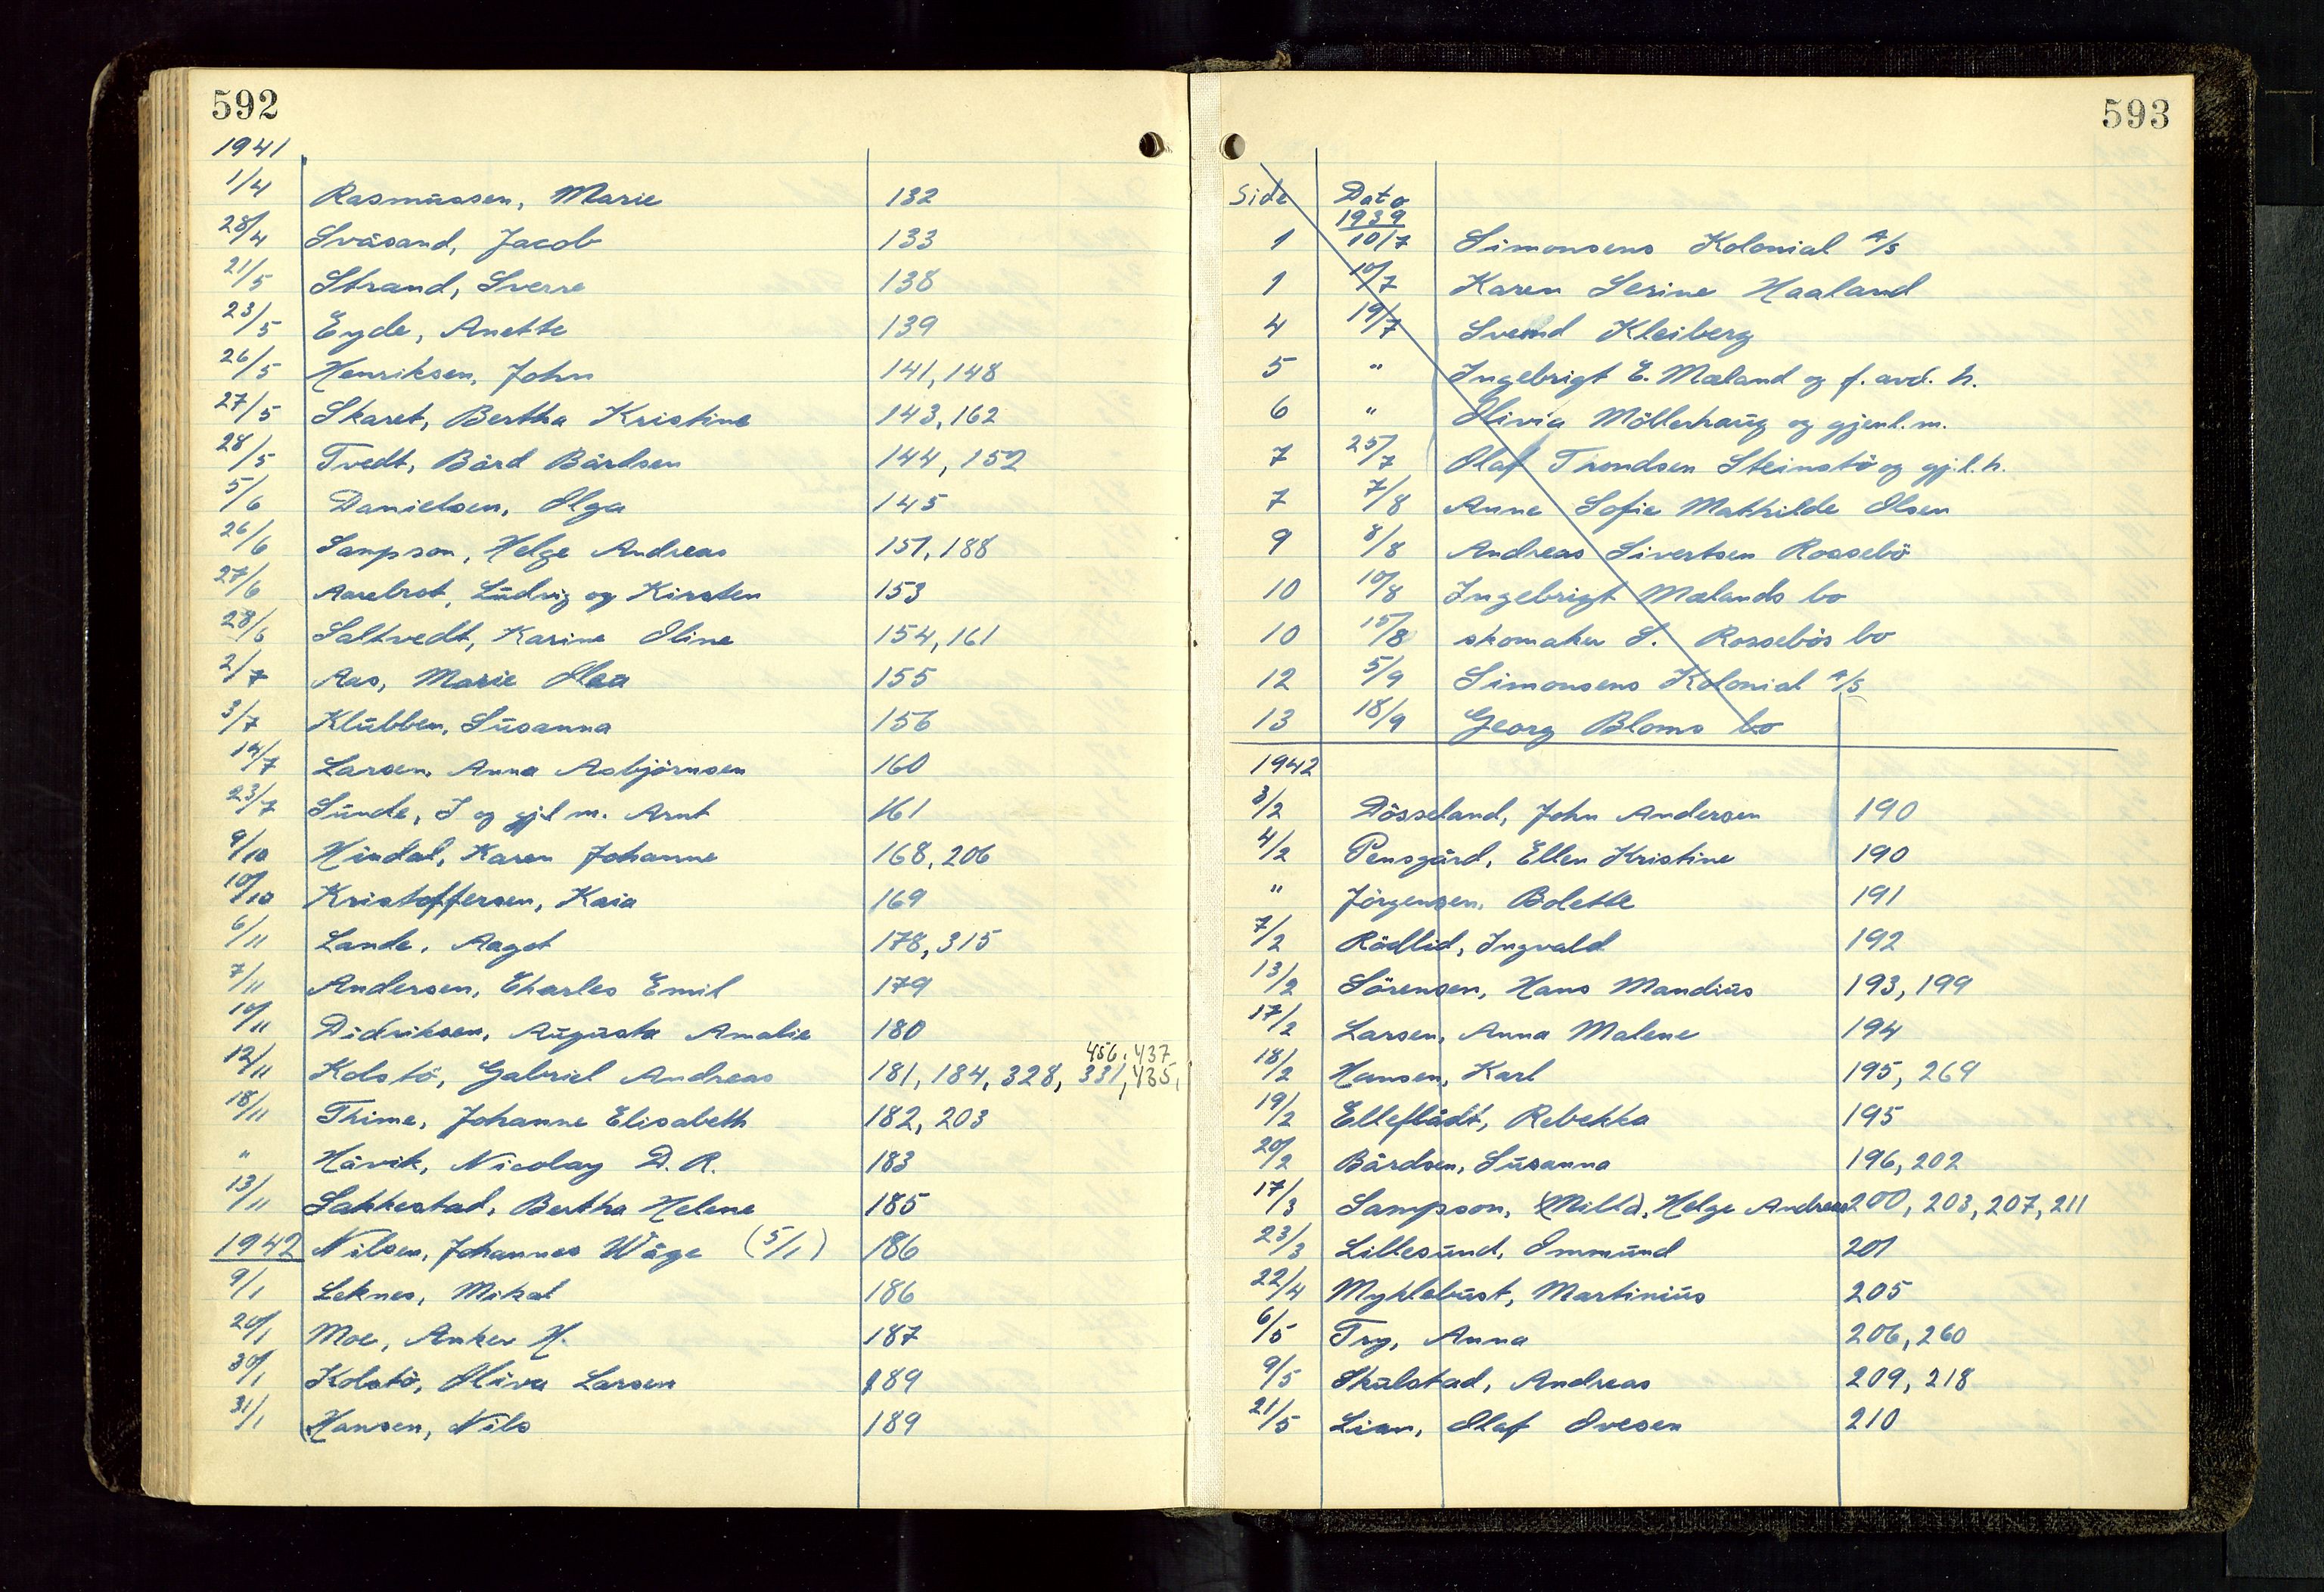 592
1941
1/4 Rasmussen, Marie 132
28/4 Svåsand, Jacob 133
21/5 Strand, Sverre 138
23/5 Eyde, Anette 139
26/5 Henriksen, John 141, 148
27/5 Skaret, Bertha Kristine 143, 162
28/5 Tvedt, Bård Bårdsen 144, 152
5/6 Danielsen, Olga 145
26/6 Sampson, Helge Andreas 151, 188
27/6 Aarebrot, Ludvig og Kirsten 153
28/6 Saltvedt, Karine Oline 154, 161
2/7 Aas, Marie Olea 155
3/7 Klubben, Susanna 156
14/7 Larsen, Anna Asbjörnsen 160
23/7 Sunde, I og gjl m. Arnt 161
9/10 Hindal, Karen Johanne 168, 206
10/10 Kristoffersen, Kaia 169
6/11 Lande, Aagot 178, 315
7/11 Andersen, Charles Emil 179
10/11 Didriksen, Augusta Amalie 180
456, 437
12/11 Kolstö, Gabriel Andreas 181, 184, 328, 331, 435,
18/11 Thime, Johanne Elisabeth 182, 203
" Håvik, Nicolay D. R. 183
13/11 Sakkestad, Bertha Helene 185
1942 Nilsen, Johannes Wåge (5/1) 186
9/1 Leknes, Mikal 186
20/1 Moe, Anker H. 187
30/1 Kolstö, Oliva Larsen 189
31/1 Hansen, Nils 189
593
Side Dato
1939
1 10/7 Simonsens Kolonial A/S
1 10/7 Karen Serine Haaland
4 19/7 Svend Kleiberg
5 " Ingebrigt E. Mæland og f. avd. h.
6 " Olivia Möllerhaug og gjenl. m.
7 25/7 Olaf Throndsen Steinstö og gj.l.h.
7 7/8 Anne Sofie Mathilde Olsen
9 8/8 Andreas Sivertsen Rossebö
10 10/8 Ingebrigt Mælands bo
10 15/8 skomaker S. Rossebös bo
12 5/9 Simonsens Kolonial A/S
13 18/9 Georg Bloms bo
1942
3/2 Dösseland, John Andersen 190
4/2 Pensgård, Ellen Kristine 190
" Jörgensen, Bolette 191
7/2 Rödlid, Ingvald 192
13/2 Sörensen, Hans Mandius 193, 199
17/2 Larsen, Anna Malene 194
18/2 Hansen, Karl 195, 269
19/2 Elleflådt, Rebekka 195
20/2 Bårdsen, Susanna 196, 202
17/3 Sampson, (Milla), Helge Andreas 200, 203, 207, 211
23/3 Lillesund, Ommund 201
22/4 Myklebust, Martinius 205
6/5 Try, Anna 206, 260
9/5 Skulstad, Andreas 209, 218
21/5 Lian, Olaf Ovesen 210